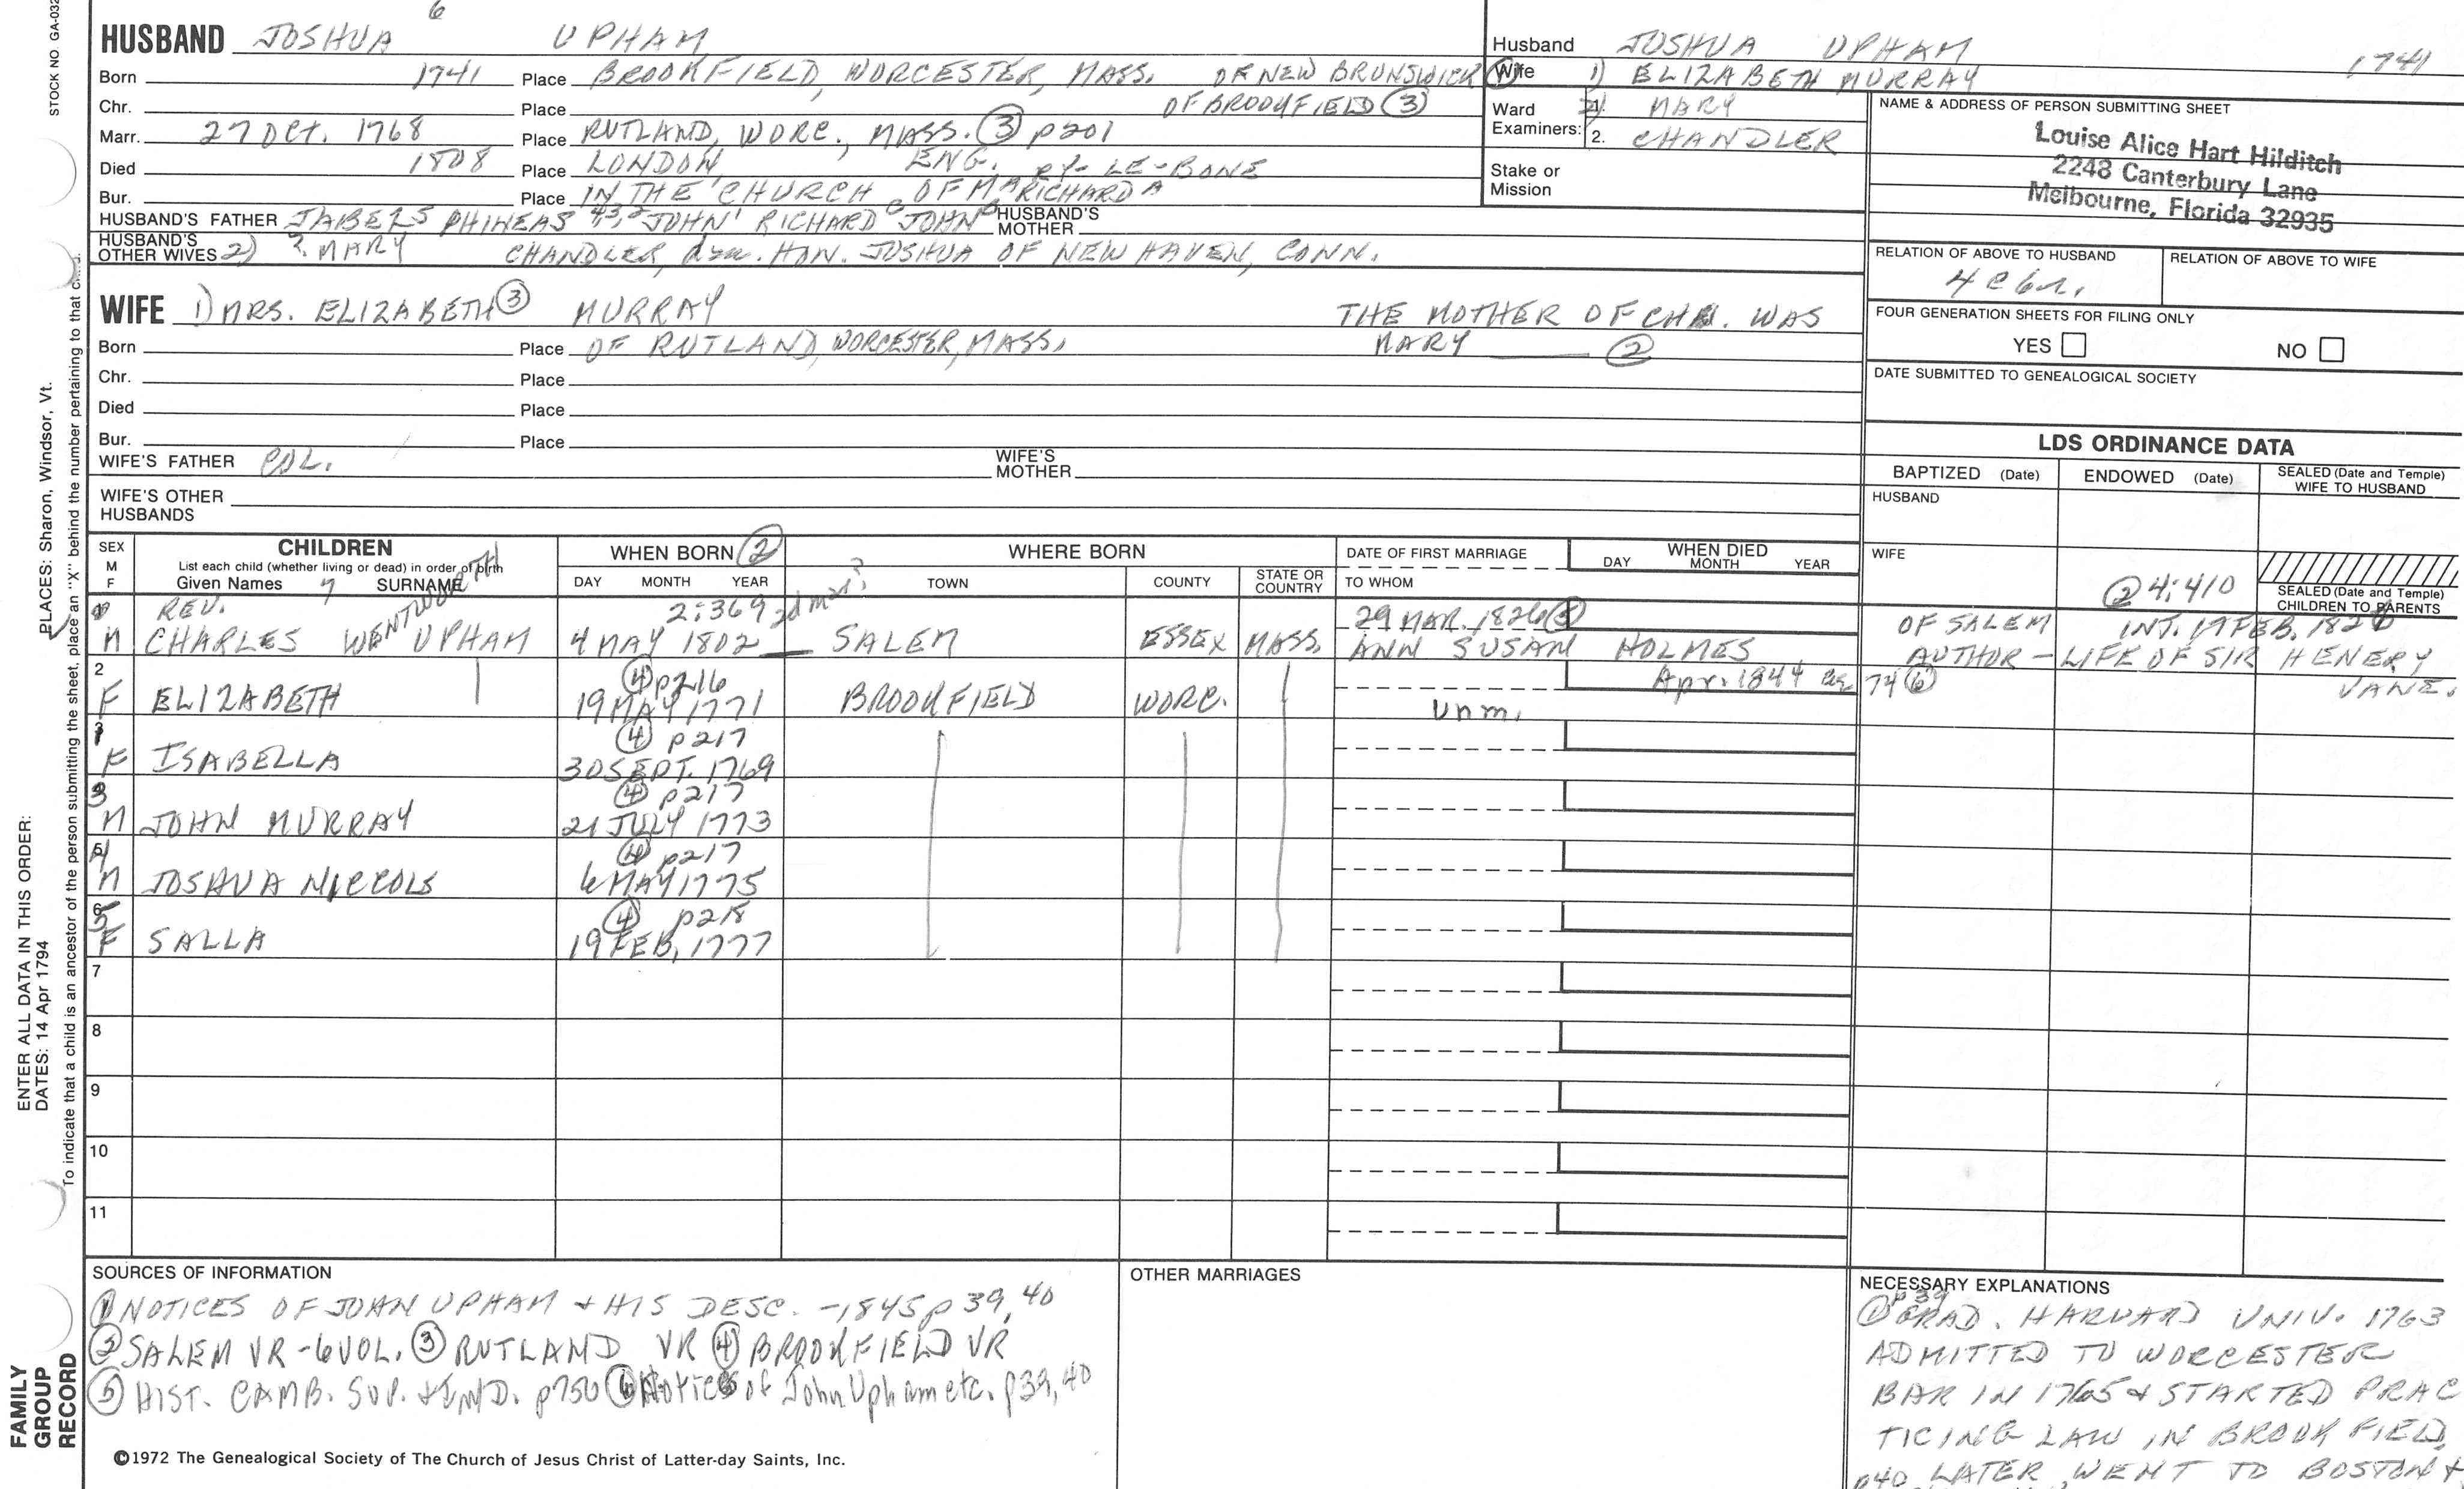 STOCK NO. GA-032
6
HUSBAND JOSHUA UPHAM
Born 1741 Place BROOKFIELD, WORCESTER, MASS. OF NEW BRUNSWICK (1)
Chr. Place OF BROOKFIELD (3)
Marr. 27 OCT. 1768 Place RUTLAND, WORC., MASS. (3) p201
Died 1808 Place LONDON, ENG. RY-LE-BONE
Bur. Place IN THE CHURCH OF MA RICHARD A
HUSBAND'S FATHER JABEZ 5 PHINEAS 4,3,2 JOHN 1 RICHARD C JOHN B HUSBAND'S MOTHER
HUSBAND'S OTHER WIVES 2) ? MARY CHANDLER, dau. HON. JOSHUA OF NEW HAVEN, CONN.
WIFE 1) MRS. ELIZABETH (3) MURRAY THE MOTHER OF CH. WAS
Born Place OF RUTLAND, WORCESTER, MASS. MARY (2)
Chr. Place
Died Place
Bur. Place
WIFE'S FATHER COL. WIFE'S MOTHER
WIFE'S OTHER HUSBANDS
Husband JOSHUA UPHAM 1741
Wife 1) ELIZABETH MURRAY
Ward Examiners: 1. 2) MARY
2. CHANDLER
Stake or Mission
NAME & ADDRESS OF PERSON SUBMITTING SHEET
Louise Alice Hart Hilditch
2248 Canterbury Lane
Melbourne, Florida 32935
RELATION OF ABOVE TO HUSBAND RELATION OF ABOVE TO WIFE
4 c 6 r.
FOUR GENERATION SHEETS FOR FILING ONLY
YES NO
DATE SUBMITTED TO GENEALOGICAL SOCIETY
LDS ORDINANCE DATA
BAPTIZED (Date) ENDOWED (Date) SEALED (Date and Temple) WIFE TO HUSBAND
HUSBAND
WIFE
(2) 4:410
SEALED (Date and Temple) CHILDREN TO PARENTS
SEX M F
CHILDREN
List each child (whether living or dead) in order of birth
Given Names 7 SURNAME
WHEN BORN (2)
DAY MONTH YEAR
WHERE BORN
TOWN COUNTY STATE OR COUNTRY
DATE OF FIRST MARRIAGE
TO WHOM
WHEN DIED
DAY MONTH YEAR
REV. 2:369 2d mar? 29 MAR. 1826 (5) OF SALEM INT. 19 FEB. 182
M CHARLES WENTWORTH UPHAM 4 MAY 1802 SALEM ESSEX MASS. ANN SUSAN HOLMES AUTHOR - LIFE OF SIR HENERY VANE.
2 (4) p216 Apr. 1844 ae 74 (6)
F ELIZABETH 19 MAY 1771 BROOKFIELD WORC. Unm.
1 (4) p217
F ISABELLA 30 SEPT. 1769
3 (4) p217
M JOHN MURRAY 21 JULY 1773
4 (4) p217
M JOSHUA NICCOLS 6 MAY 1775
5 (4) p218
F SALLA 19 FEB, 1777
7
8
9
10
11
SOURCES OF INFORMATION
(1) NOTICES OF JOHN UPHAM + HIS DESC. -1845 p 39, 40
(2) SALEM VR - 6 VOL. (3) RUTLAND VR (4) BROOKFIELD VR
(5) HIST. CAMB. SUP. + IND. p750 (6) Notices of John Upham etc. p39, 40
OTHER MARRIAGES
NECESSARY EXPLANATIONS
(1) p39 GRAD. HARVARD UNIV. 1763
ADMITTED TO WORCESTER
BAR IN 1765 + STARTED PRAC
TICING LAW IN BROOKFIELD,
p40 LATER WENT TO BOSTON +
©1972 The Genealogical Society of The Church of Jesus Christ of Latter-day Saints, Inc.
ENTER ALL DATA IN THIS ORDER:
DATES: 14 Apr 1794
PLACES: Sharon, Windsor, Vt.
To indicate that a child is an ancestor of the person submitting the sheet, place an "X" behind the number pertaining to that child.
FAMILY
GROUP
RECORD